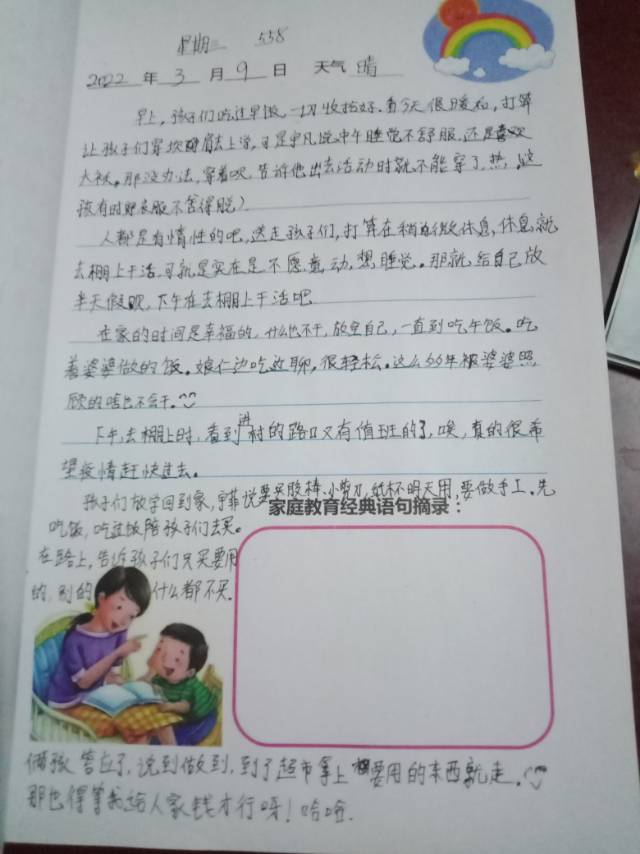 星期三 558
2022 年 3 月 9 日 天气 晴
早上,孩子们吃过早饭,一切收拾好.看今天很暖和,打算
让孩子们穿坎肩去上学,可是中凡说中午睡觉不舒服,还是喜欢
大袄。那没办法,穿着呗,告诉他出去活动时就不能穿了,热,这
孩有时脱衣服不舍得脱)
人都是有惰性的吧,送走孩子们,打算在稍微休息,休息就
去棚上干活,可就是实在是不愿意动,想睡觉。那就给自己放
半天假呗,下午在去棚上干活吧
在家的时间是幸福的,什么也不干,放空自己,一直到吃午饭。吃
着婆婆做的饭。娘仨边吃边聊,很轻松。这么多年被婆婆照
顾的啥也不会干。
下午,去棚上时,看到进村的路口又有值班的了,唉,真的很希
望疫情赶快过去。
孩子们放学回到家,宇菲说要买胶棒、小剪刀,纸杯明天用,要做手工。先
家庭教育经典语句摘录:
吃饭,吃过饭陪孩子们去买。
在路上,告诉孩子们只买要用
的,别的什么都不买.
俩孩答应了,说到做到,到了超市拿上要用的东西就走。
那也得等我给人家钱才行呀!哈哈.